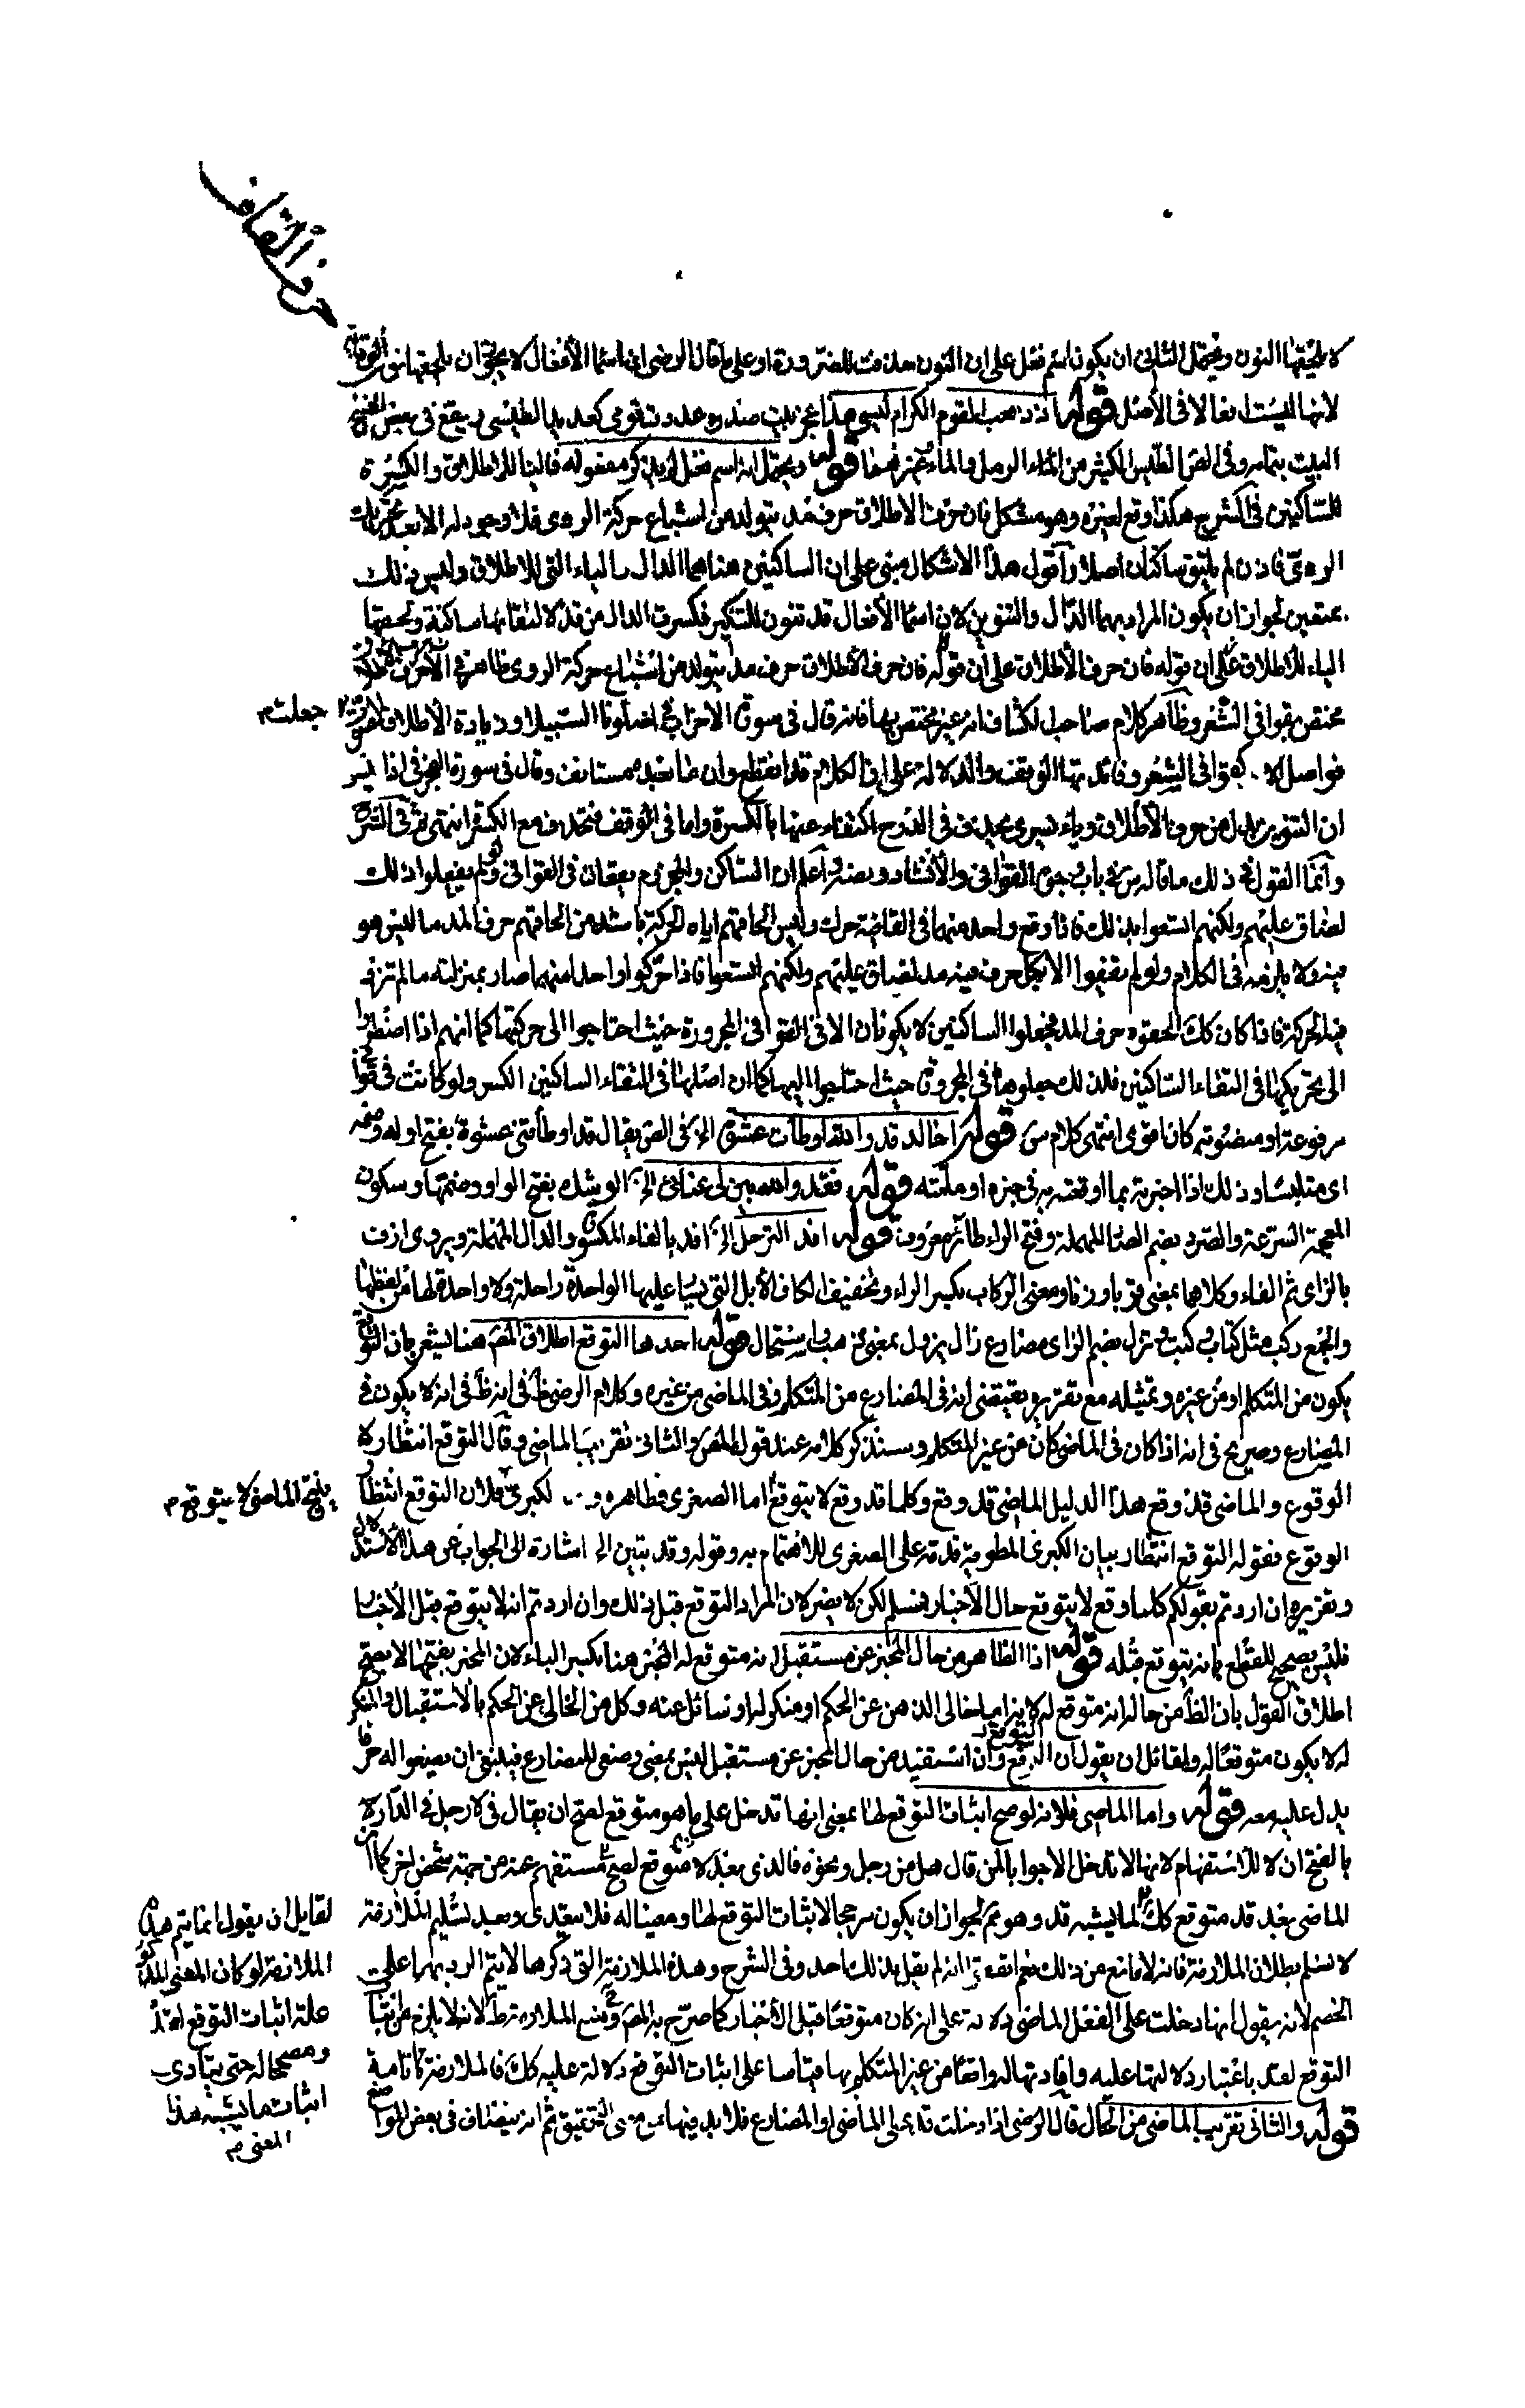 حرف القاف
لا يلحقها النون ويحتمل الثاني ان يكون اسم فعل على ان النون حذفت للضرورة او على ما قال الرضي ان اسما الأفعال لا يجوز ان يلحقها نون الوقاية
لانها ليست افعالا في الأصل قوله اذ ذهب القوم الكرام ليسي هذا عجز بيت صدره عددت قومي كعديد الطيس ويقع في بعض النسخ
البيت بتمامه وفي الص الطيس الكثير من الماء الرمل والماء وغيرهما قوله ويحتمل انه اسم فعل لم يذكر مفعوله فاليا للاطلاق والكسرة
للساكنين في الشرح هكذا وقع لغيره وهو مشكل فان حرف الاطلاق حرف مد يتولد من اشباع حركة الروي فلا وجود له الا بعد تحريك
الروي فاذن لم يلتق ساكنان اصلا واقول هذا الاشكال مبني على ان الساكنين هنا هما الدال والياء التي للاطلاق وليس ذلك
بمتعين لجواز ان يكون المراد بهما الدال والتنوين لان اسما الأفعال قد تنون للتنكير فكسرت الدال من قد لالتقائها ساكنة وتحقها
الياء للاطلاق على ان قوله فان حرف الأطلاق حرف مد يتولد من اشباع حركة الروي ظاهر في
مختص بقوافي الشعر وظاهر كلام صاحب الكشاف انه غير مختص بها فانه قال في سورة الاحزاب في اضلونا السبيلا وزيادة الأطلاق
جعلت م
فواصل الآي كقوافي الشعر وفائدتها الوقف والدلالة على ان الكلام قد انقطع وان ما بعده مستانف وقال في سورة الفجر في اذا يسر
ان التنوين بدل من حرف الأطلاق وياء يسري يحذف في الدرج اكتفاء عنها بالكسرة واما في الوقف فتحذف مع الكسرة انتهى ثم في الشرح
وانما القول في ذلك ما قاله س في باب وجوه القوافي والأنشاد ونصه واعلم ان الساكن والمجزوم يقعان في القوافي ولو لم يفعلوا ذلك
لضاق عليهم ولكنهم اتسعوا بذلك فاذا وقع واحد منهما في القافية حرك وليس الحاقهم اياه الحركة باشد من الحاقهم حرف المد ما ليس هو
فيه ولا يلزمه في الكلام ولو لم يقفوا الا بكل حرف فيه مد لضاق عليهم ولكنهم اتسعوا فاذا حركوا واحدا منهما صار بمنزلته ما لم تزل
فيه الحركة فاذا كان كك الحقوه حرف المد فجعلوا الساكنين لا يكونان الا في القوافي المجرورة حيث احتاجوا الى حركتها كما انهم اذا اضطروا
الى تحريكها في التقاء الساكنين فلذلك جعلوها في المجرورة حيث احتاجوا اليها كما ان اصلها في التقاء الساكنين الكسر ولو كانت في قوافي
مرفوعة او منصوبة كان اقوى انتهى كلام س قوله اخالد قد والله اوطأت عشوة الخ في الص يقال قد اوطأتني عشوة بفتح اوله وضمه
اي متلبسا وذلك اذا اخبرته بما اوقعته به في حيرة او ملتبه قوله فقد والله بين لي عنائي الخ الوشك بفتح الواو وضمها وسكون
المعجمة السرعة والصرد بضم الصاد المهملة وفتح الراء طائر معروف قوله افد الترحل الخ افد بالفاء المكسورة والدال المهملة ويروى ازف
بالزاي ثم الفاء وكلاهما بمعنى قرب باوزنا ومعنى الركاب بكسر الراء وتخفيف الكاف الأبل التي يسار عليها الواحدة راحلة ولا واحدة لها من لفظها
والجمع ركب مثل كتاب وكتب وتزل بضم الزاي مضارع زال يزول بمعنى ذهب واستحال قوله احدها التوقع اطلاق المص هنا يشعر بان التوقع
يكون من المتكلم او من غيره وتمثيله مع تقريره يقتضي انه في المضارع من المتكلم وفي الماضي من غيره وكلام الرضي ظ في انه لا يكون في
المضارع وصريح في انه اذا كان في الماضي كان من غير المتكلم وسنذكر كلامه عند قول المص والثاني تقريب الماضي وقال التوقع انتظار
الوقوع والماضي قد وقع هذا الدليل الماضي قد وقع وكلما قد وقع لا يتوقع اما الصغرى فظاهرة و... الكبرى فلان التوقع انتظار
ينتج الماضي لا يتوقع م
الوقوع فقوله التوقع انتظار بيان الكبرى المطوية قدمه على الصغرى للاهتمام به وقوله وقد تبين الخ اشارة الى الجواب عن هذا الأستدلال
وتقريره ان اردتم بقولكم كلما وقع لا يتوقع حال الأخبار فنسلم لكن لا يضر لان المراد التوقع قبل ذلك وان اردتم انه لا يتوقع قبل الأخبار
فليس بصحيح للقطع بانه يتوقع قبله قوله اذ الظاهر من حال المخبر عن مستقبل انه متوقع له المخبر هنا بكسر الباء لان المخبر بفتحها لا يصح
اطلاق القول بان الظ من حاله انه متوقع له لانه اما خالي الذهن عن الحكم او منكر له او سائل عنه وكل من الخالي عن الحكم بالاستقبال والمنكر
له لا يكون متوقعا له ولقائل ان يقول ان التوقع وان استفيد من حال المخبر عن مستقبل ليس بمعنى وضعي للمضارع فينبغي ان يضعوا له حرفا
يدل عليه معه قوله واما الماضي فلانه لو صح اثبات التوقع لها بمعنى انها تدخل على ما هو متوقع لصح ان يقال في لا رجل في الدار لا
بالفتح ان لا للاستفهام لانها لا تدخل الا جوابا لمن قال هل من رجل ونحوه فالذي بعد لا مستفهم عنه من جهة شخص اخر كما ان
الماضي بعد قد متوقع كك لما يشبه قد وهو ثم لجواز ان يكون مرجحا لاثبات التوقع لها ومصححا له فلا يتعدى وبعد تسليم الملازمة
لا نسلم بطلان الملازمة فانه لا مانع من ذلك نعم انه لم يقل بذلك احد وفي الشرح وهذه الملازمة التي ذكرها لا يتم الرد بها على
الخصم لانه يقول انها دخلت على الفعل الماضي دلالة على انه كان متوقعا قبل الأخبار كما صرح به المص ومنع الملازمة ظ لانه لا يلزم من اثبات
التوقع لقد باعتبار دلالتها عليه وافادتها له واقعا من غير المتكلم بها قياسا على اثبات التوقع دلالة عليه كك فالملازمة كاتامة
قوله والثاني تقريب الماضي من الحال قال الرضي اذا دخلت قد على الماضي او المضارع فلا بد فيها من معنى التحقيق ثم انه ينضاف في بعض المواضع
لقايل ان يقول انما يتم هذه
الملازمة لو كان المعنى المذكور
علة اثبات التوقع لقد
ومصححا له حتى يتأدى
اثبات ما يشبه هذا
المعنى م